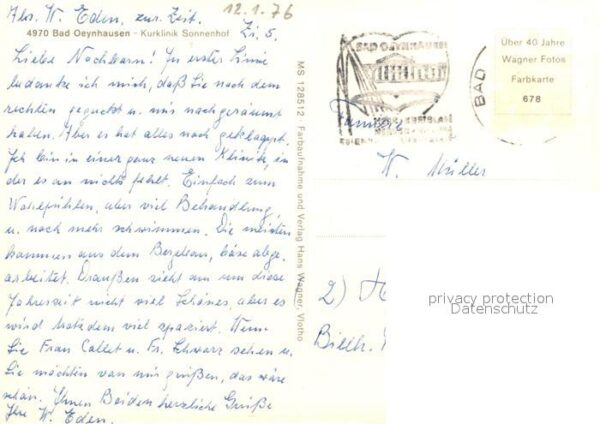 Abs. W. Eden, zur Zeit.
Zi. 5.
12.1.76
4970 Bad Oeynhausen - Kurklinik Sonnenhof
Liebe Nachbarn! In erster Linie
bedanke ich mich, daß Sie nach dem
rechten geguckt u. mir nachgeräumt
haben. Aber es hat alles noch geklappt.
Ich bin in einer ganz neuen Klinik, in
der es an nichts fehlt. Einfach zum
Wohlfühlen, aber viel Behandlung,
u. noch mehr schwimmen. Die meisten
kommen aus dem Bergbau, böse abge-
arbeitet. Draußen sieht man um diese
Jahreszeit nicht viel Schönes, aber es
wird trotzdem viel spaziert. Wenn
Sie Frau Callet u. Fr. Schwarz sehen u.
Sie möchten von mir grüßen, das wäre
schön. Ihnen Beiden herzliche Grüße
Ihre W. Eden.
MS 128512 · Farbaufnahme und Verlag Hans Wagner, Vlotho
BAD OEYNHAUSEN
BAD
Über 40 Jahre
Wagner Fotos
Farbkarte
678
Familie
W. Müller
2)
privacy protection
Datenschutz